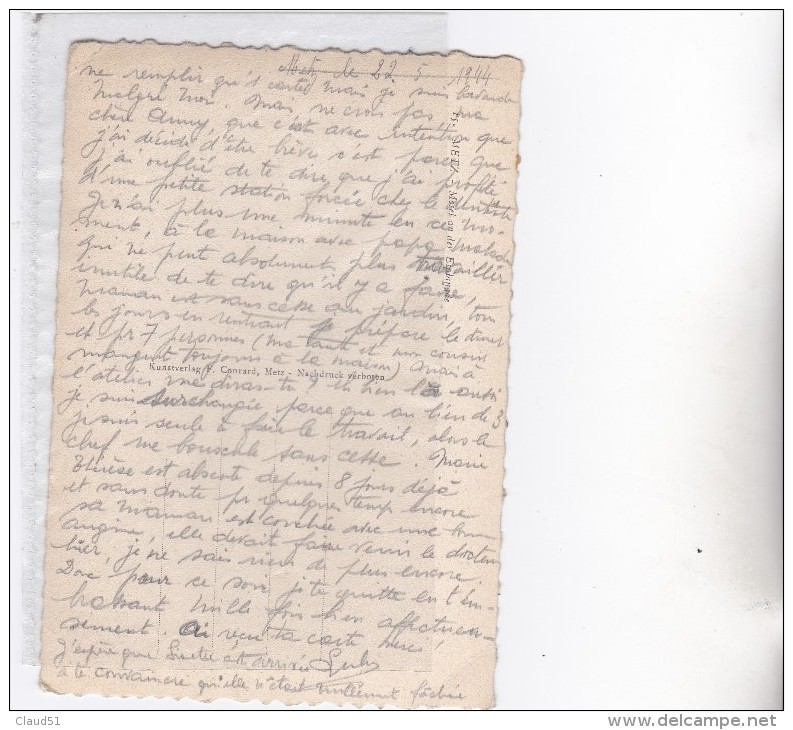 Metz, le 22 5 1944
ne remplir qu'1 carte, mais je suis bavarde
malgré moi. Mais ne crois pas ma
chère Anny, que c'est avec intention que
j'ai décidé d'être brève, c'est parce que
j'ai oublié de te dire que j'ai profité
d'une petite station forcée chez le dentiste
Je n'ai plus une minute en ce mo-
ment, à la maison avec papa malade
qui ne peut absolument plus travailler
inutile de te dire qu'il y a à faire,
maman est sans cesse au jardin, tous
les jours en rentrant je prépare le dîner
et pr 7 personnes (ma tante et mon cousin
mangent toujours à la maison) Mais à
Kunstverlag F. Conrard, Metz - Nachdruck verboten
l'atelier me diras-tu ? Eh bien là aussi
je suis surchargée, parce que au lieu de 3
je suis seule à faire le travail, alors le
chef me bouscule sans cesse. Marie
Thérèse est absente depuis 8 jours déjà
et sans doute pr quelques temps encore
sa maman est couchée avec une
angine, elle devait faire venir le docteur
hier, je ne sais rien de plus encore.
Donc pour ce soir je te quitte en t'em-
brassant mille fois bien affectueu-
sement. Ai reçu ta carte merci!
J'espère que est arrivée
à te convaincre qu'elle n'était nullement fâchée
METZ - Mosel an der Esplanade
Claud51